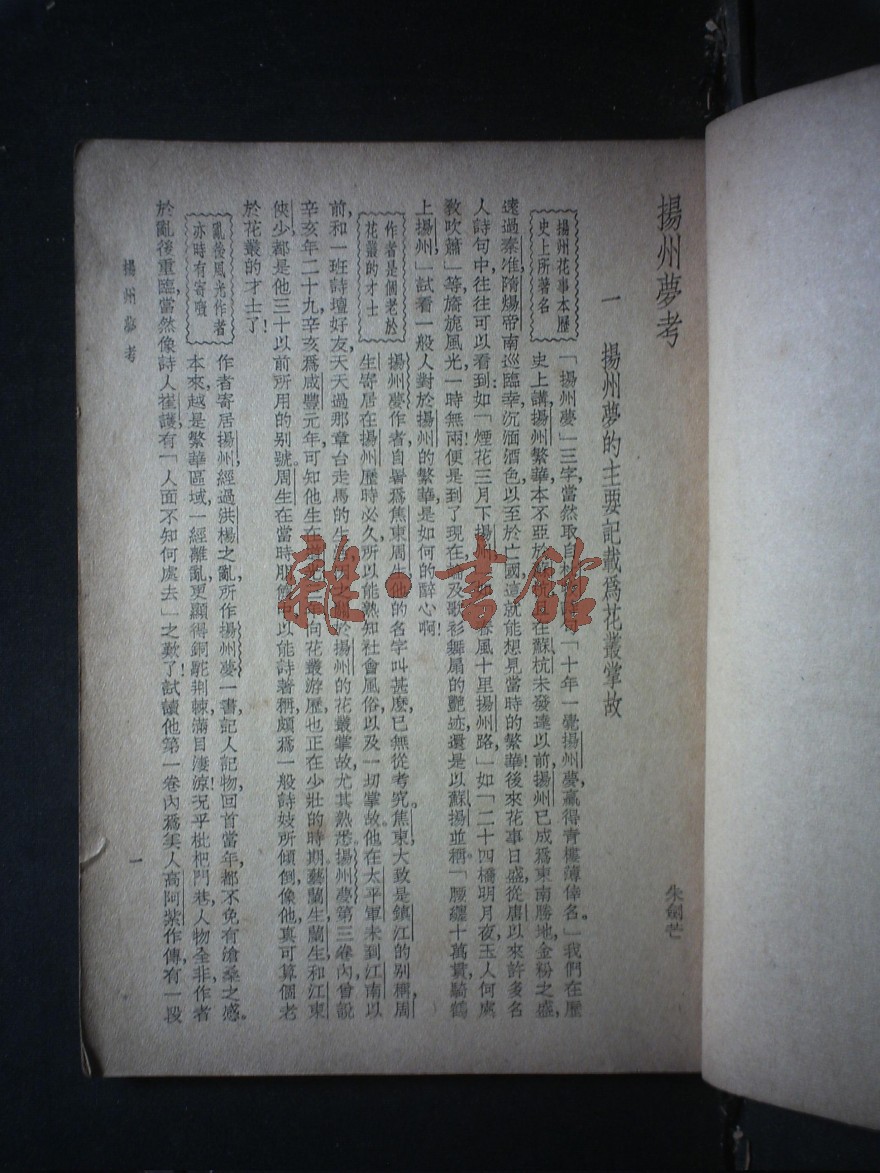 揚州夢考
朱劍芒
一　揚州夢的主要記載爲花叢掌故
揚州花事本歷
史上所著名
「揚州夢」三字，當然取自杜牧詩句「十年一覺揚州夢，贏得青樓薄倖名。」我們在歷
史上講，揚州繁華本不亞於蘇杭；且在蘇杭未發達以前，揚州已成爲東南勝地，金粉之盛，
遠過秦淮，隋煬帝南巡臨幸，沉湎酒色，以至於亡國，這就能想見當時的繁華！後來花事日盛，從唐以來許多名
人詩句中，往往可以看到：如「煙花三月下揚州，」如「春風十里揚州路，」如「二十四橋明月夜，玉人何處
教吹簫」等，旖旎風光，一時無兩！便是到了現在，
及歌衫舞扇的艷迹，還是以蘇揚並稱。「腰纏十萬貫，騎鶴
上揚州，」試看一般人對於揚州的繁華，是如何的醉心啊！
作者是個老於
花叢的才士
揚州夢作者，自署爲焦東周生，他的名字叫甚麼，已無從考究。焦東大致是鎮江的別稱，周
生寄居在揚州，歷時必久，所以能熟知社會風俗，以及一切掌故。他在太平軍未到江南以
前，和一班詩壇好友，天天過那章台走馬的生
於揚州的花叢掌故，尤其熟悉。揚州夢第三卷內，曾說
辛亥年二十九，辛亥爲咸豐元年，可知他生在道光
向花叢游歷，也正在少壯的時期。藝蘭生、蘭生和江東
俠少，都是他三十以前所用的別號。周生在當時朋儕中，以能詩著稱，頗爲一般詩妓所傾倒，像他，真可算個老
於花叢的才士了！
亂後風光作者
亦時有寄慨
作者寄居揚州，經過洪楊之亂，所作揚州夢一書，記人記物，回首當年，都不免有滄桑之感。
本來，越是繁華區域，一經離亂，更顯得銅駝荊棘，滿目淒涼！況乎枇杷門巷，人物全非，作者
於亂後重臨，當然像詩人崔護，有「人面不知何處去」之歎了！試讀他第一卷內爲美人高阿紫作傳，有一段
揚州夢考
一
雜·書館